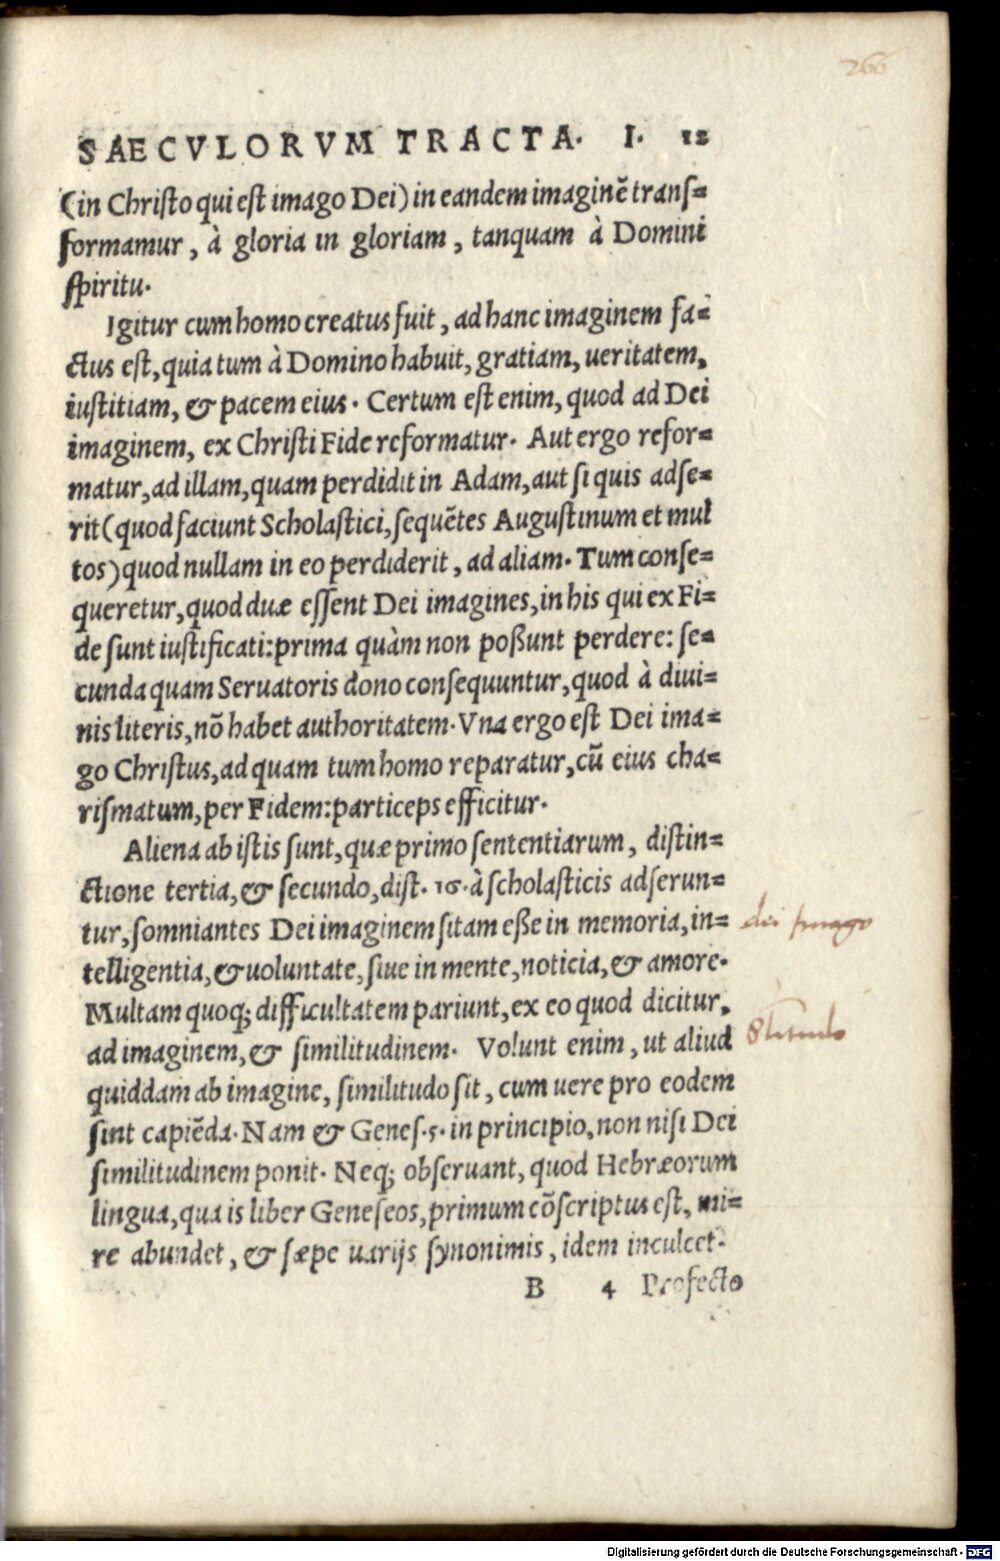 266
SAECVLORVM TRACTA. I. 12
(in Christo qui est imago Dei) in eandem imaginē trans=
formamur, à gloria in gloriam, tanquam à Domini
spiritu.
Igitur cum homo creatus fuit, ad hanc imaginem fa=
ctus est, quia tum à Domino habuit, gratiam, ueritatem,
iustitiam, & pacem eius. Certum est enim, quod ad Dei
imaginem, ex Christi Fide reformatur. Aut ergo refor=
matur, ad illam, quam perdidit in Adam, aut si quis adse=
rit (quod faciunt Scholastici, sequētes Augustinum et mul
tos) quod nullam in eo perdiderit, ad aliam. Tum conse=
queretur, quod duæ essent Dei imagines, in his qui ex Fi=
de sunt iustificati: prima quàm non poßunt perdere: se=
cunda quam Seruatoris dono consequuntur, quod à diui=
nis literis, nō habet authoritatem. Vna ergo est Dei ima=
go Christus, ad quam tum homo reparatur, cū eius cha=
rismatum, per Fidem: particeps efficitur.
Aliena ab istis sunt, quæ primo sententiarum, distin=
ctione tertia, & secundo, dist. 16. à scholasticis adserun=
tur, somniantes Dei imaginem sitam eße in memoria, in=
dei Imago
telligentia, & uoluntate, siue in mente, noticia, & amore.
Multam quoq; difficultatem pariunt, ex eo quod dicitur,
ad imaginem, & similitudinem. Volunt enim, ut aliud
quiddam ab imagine, similitudo sit, cum uere pro eodem
sint capiēda. Nam & Genes. 5. in principio, non nisi Dei
similitudinem ponit. Neq; obseruant, quod Hebræorum
lingua, qua is liber Geneseos, primum cōscriptus est, mi=
re abundet, & sæpe uarijs synonimis, idem inculcet.
B 4 Profecto
Digitalisierung gefördert durch die Deutsche Forschungsgemeinschaft - DFG